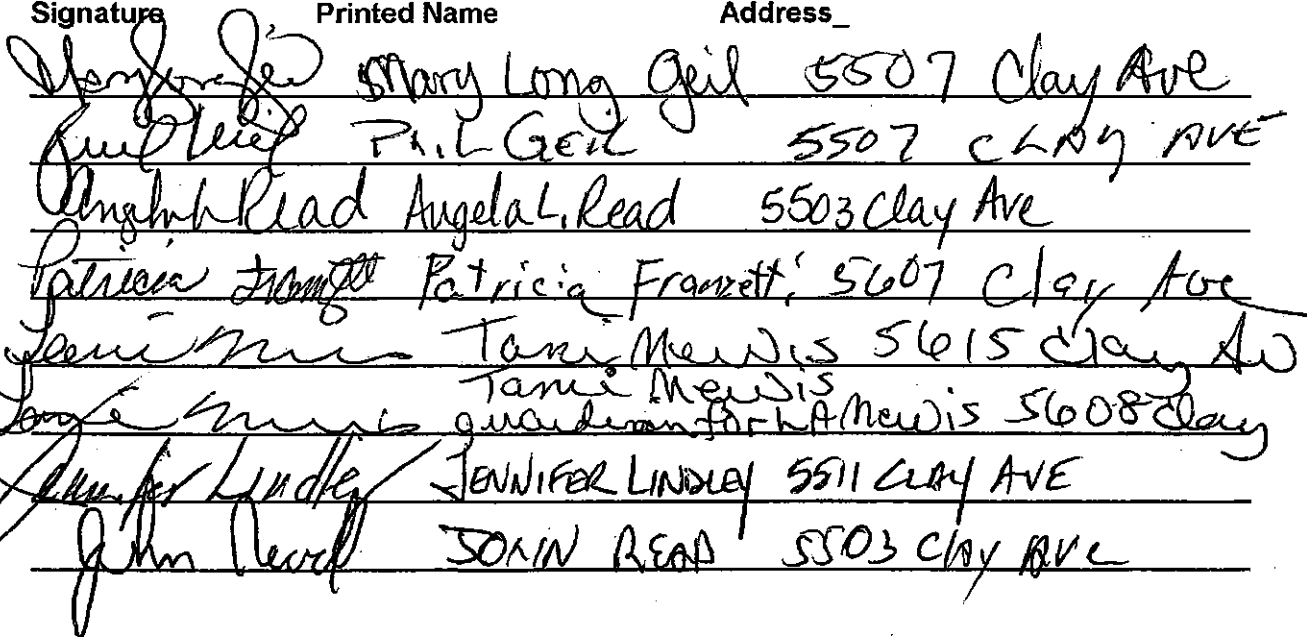 Signature Printed Name Address_
Mary Long Geil 5507 Clay Ave
Phil Geil 5507 CLAY AVE
Angela L. Read 5503 Clay Ave
Patricia Patricia Franzetti 5607 Clay Ave
Tami Mewis 5615 Clay Av
Tami Mewis
guardian for LA Mewis 5608 Clay
Jennifer Lindley JENNIFER LINDLEY 5511 CLAY AVE
John Read JOHN READ 5503 Clay AVE